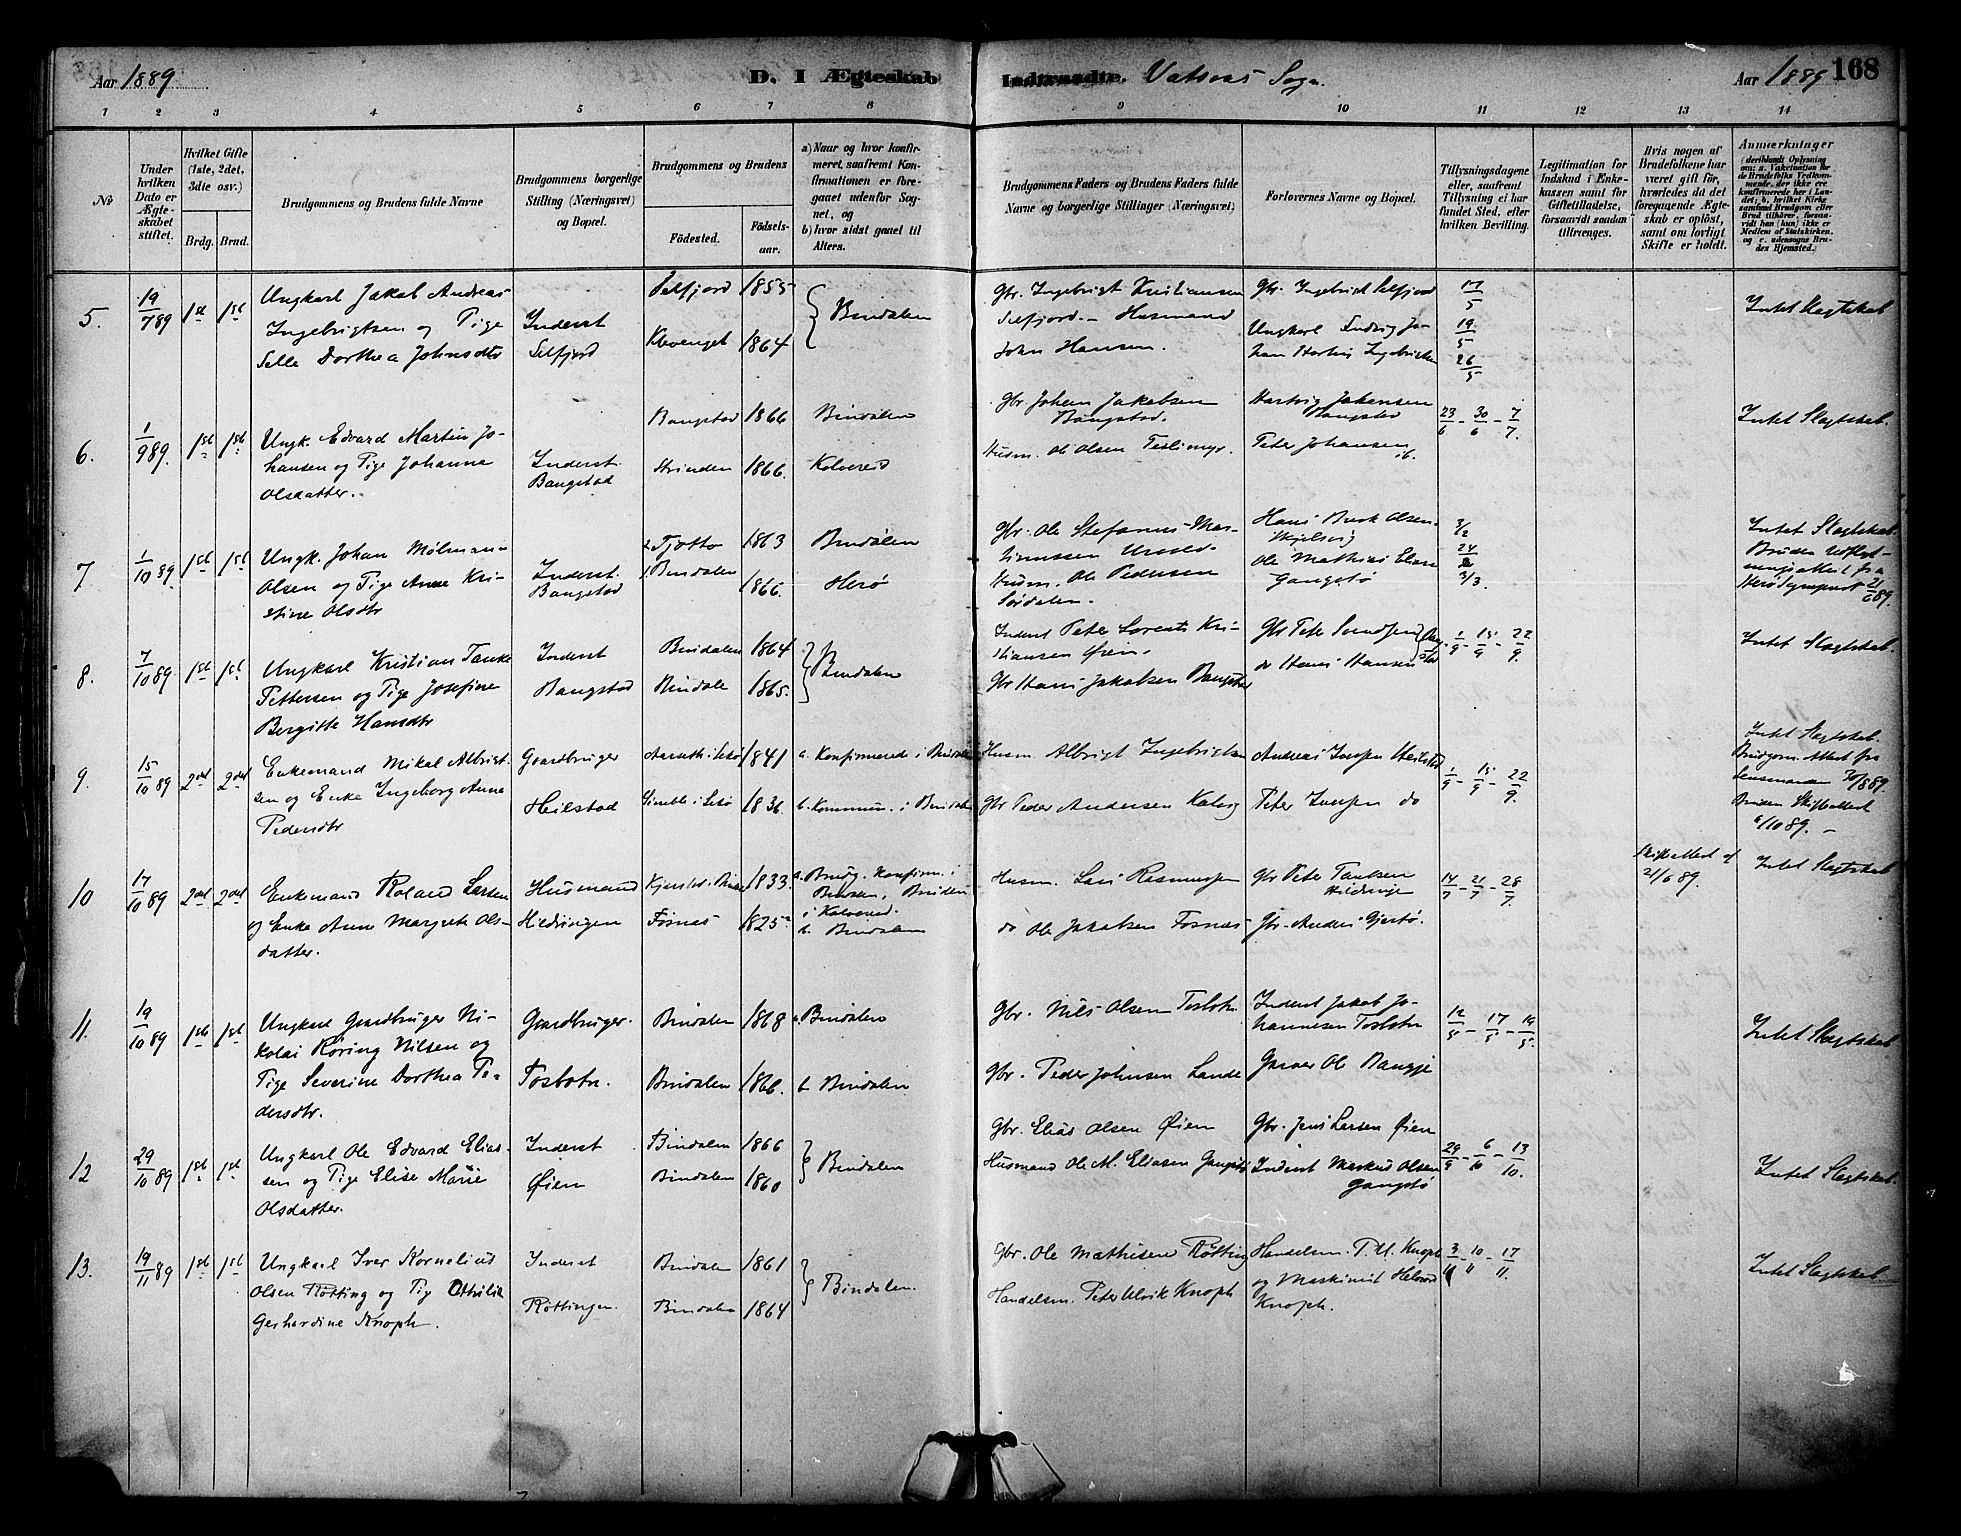 Aar 1889
D. I Ægteskab
Indtraadte. Vatsaas Sogn.
Aar 1889
168
1 2 3 4 5 6 7 8 9 10 11 12 13 14
No
Under hvilken Dato er Ægteskabet stiftet.
Hvilket Gifte (1ste, 2det, 3die osv.)
Brdg. Brud.
Brudgommens og Brudens fulde Navne
Brudgommens borgerlige Stilling (Næringsvei) og Bopæl.
Brudgommens og Brudens
Födested.
Födselsaar.
a) Naar og hvor konfirmeret, saafremt Konfirmationen er foregaaet udenfor Sognet, og
b) hvor sidst gaaet til Alters.
Brudgommens Faders og Brudens Faders fulde Navne og borgerlige Stillinger (Næringsvei)
Forlovernes Navne og Bopæl.
Tillysningsdagene eller, saafremt Tillysning ei har fundet Sted, efter hvilken Bevilling.
Legitimation for Indskud i Enkekassen samt for Giftetilladelse, forsaavidt saadan tiltrænges.
Hvis nogen af Brudefolkene har været gift för, hvorledes da det foregaaende Ægteskab er oplöst, samt om lovligt Skifte er holdt.
Anmerkninger
5. 19/7 89 1st 1st
Ungkarl Jakob Andreas
Ingebrigtsen og Pige
Selle Dorthea Johnsdtr
Inderst
Selfjord
Selfjord 1855
Klevenget 1864
Bindalen
Gbr. Ingebrigt Kristiansen
Selfjord. - Husmand
John Hansen.
Gbr. Ingebrigt Selfjord
Ungkarl Ludvig Jo-
19/5
26/5
Intet Slagtskab
6. 1/9 89. 1st 1st
Ungk. Edvard Martin Jo-
hansen og Pige Johanna
Olsdatter.
Inderst.
Bangstad
Bangstad 1866
Strinden 1866.
Bindalen
Kolvereid
Gbr. Johan Jakobsen
Bangstad.
Husm. Ol Olsen
Hartvig Johansen
Bangstad
Peter Johansen ib.
23/6 - 30/6 - 7/7.
Intet Slagtskab.
7 1/10 89. 1st 1st
Ungk. Johan
Olsen og Pige Anne Kri-
stine Olsdtr
Inderst.
Bangstad
Tjøtto 1863
Bindalen 1866.
Bindalen
Herø
Gbr. Ole Stefanus Mar-
Husm. Ole Pedersen
Sørdalen.
Hans Buck Olsen
Ole Mathias Elias
Gangstø
3/2
24/2
3/3.
Intet Slagtskab.
Bruden Udflyt-
ningsattest fra
8. 7/10 89 1st 1st
Ungkarl Kristian Tanke
Pettersen og Pige Josefine
Bergitte Hansdtr
Inderst
Bangstad
Bindalen 1864
Bindale 1865.
Bindalen
Inderst Peter Lorents Kri-
stiansen Øien.
Gbr Hans Jakobsen Bangstad
Gbr Peter Svendsen
do Hans Hansen
1/9 - 15/9 - 22/9.
Intet Slagtskab.
9. 15/10 89 2det 2det
Enkemand Mikal Albrigt-
sen og Enke Ingeborg Anna
Pedersdtr
Gaardbruger
Heilstad
1841
1836.
a. Konfirmerede i Bindalen
b. Kommun. i Bindalen
Husm. Albrigt Ingebrigtsen
Gbr Peder Andersen Kalvig
Andreas Iversen Heilstad
Peter Iversen do
1/9 - 15/9 - 22/9.
Intet Slagtskab.
Brudgom. Attest fra
Lensmanden 30/8 89.
Bruden Skifteattest
10 17/10 89 2det 2det
Enkemand Roland Larsen
og Enke Anne Margrete Ols-
datter.
Husmand
Hildringen
1833.
Fosnes 1825
a. Brudg. konfirm. i
Bindalen, Bruden
i Kolvereid.
b. Bindalen
Husm. Lars Rasmussen
do Ole Jakobsen Fosnes
Gbr Peter Paulsen
Hildringen
Gbr. Anders Gjestø.
14/7 - 21/7 - 28/7.
Skifteattest af
21/6 89.
Intet Slagtskab
11. 19/10 89 1st 1st
Ungkarl Gaardbruger Ni-
kolai Røring Nilsen og
Pige Severine Dorthea Pe-
dersdtr.
Gaardbruger.
Tosbotn.
Bindalen 1868
Bindalen 1866.
a. Bindalen
b Bindalen
Gbr. Nils Olsen Tosbotn.
Gbr. Peder Johnsen Lande
Inderst Jakob Jo-
hannesen Tosbotn
Garver Ole
12/5 - 17/5 - 19/5.
Intet Slagtskab
12 29/10 89 1st 1st
Ungkarl Ole Edvard Elias-
sen og Pige Elise Marie
Olsdatter.
Inderst
Øien
Bindalen 1866
Bindalen 1860
Bindalen
Gbr. Elias Olsen Øien
Husmand Ole M. Eliasen Gangstø
Gbr. Jens Larsen Øien
Inderst Markus Olsen
Gangstø
29/9 - 6/10 - 13/10.
Intet Slagtskab.
13. 19/11 89 1st 1st
Ungkarl Iver Kornelius
Olsen Røtting og Pig Othilie
Gerhardine Knoph.
Inderst
Røttingen.
Bindalen 1861
Bindalen 1864
Bindalen.
Gbr. Ole Mathisen Røtting
Handelsm. Peter Ulvik Knoph
Handelsm. P. U. Knoph
og Maskinist
Knoph.
3/11 - 10/11 - 17/11.
Intet Slagtskab